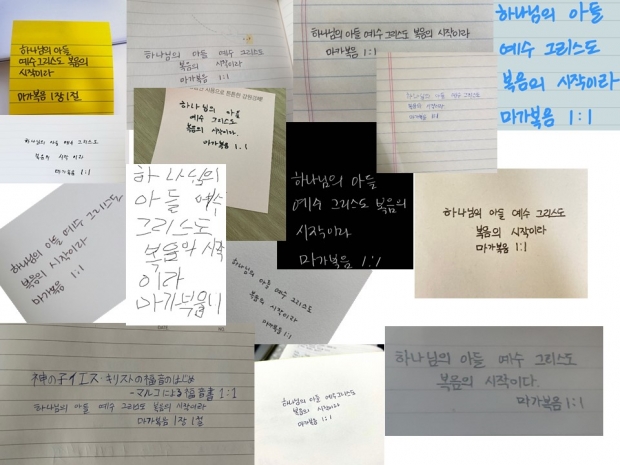 하나님의 아들
예수 그리스도 복음의
시작이라
마가복음 1장 1절
하나님의 아들 예수 그리스도
복음의 시작이라
마가복음 1:1
하나님의 아들 예수 그리스도 복음의 시작이라
마가복음 1:1
하나님의 아들
예수 그리스도
복음의 시작이라
마가복음 1:1
하나님의 아들 예수 그리스도
복음의 시작이라
마가복음 1:1
하나님의 아들
예수 그리스도
복음의 시작이다.
마가복음 1:1
하나님의 아들 예수 그리스도
복음의 시작이라
마가복음 1:1
하나님의 아들 예수 그리스도
복음의 시작이라
마가복음 1:1
하나님의
아들 예수
그리스도
복음의 시작
이라
마가복음 1:1
하나님의 아들
예수 그리스도 복음의
시작이라
마가복음 1:1
하나님의 아들 예수 그리스도
복음의 시작이라
마가복음 1:1
하나님의 아들 예수 그리스도
복음의 시작이라
마가복음 1:1
神の子イエス・キリストの福音のはじめ
-マルコによる福音書 1:1
하나님의 아들 예수 그리스도 복음의 시작이라
마가복음 1장 1절
하나님의 아들 예수그리스도
복음의 시작이라
마가복음 1:1
하나님의 아들 예수 그리스도
복음의 시작이다.
마가복음 1:1